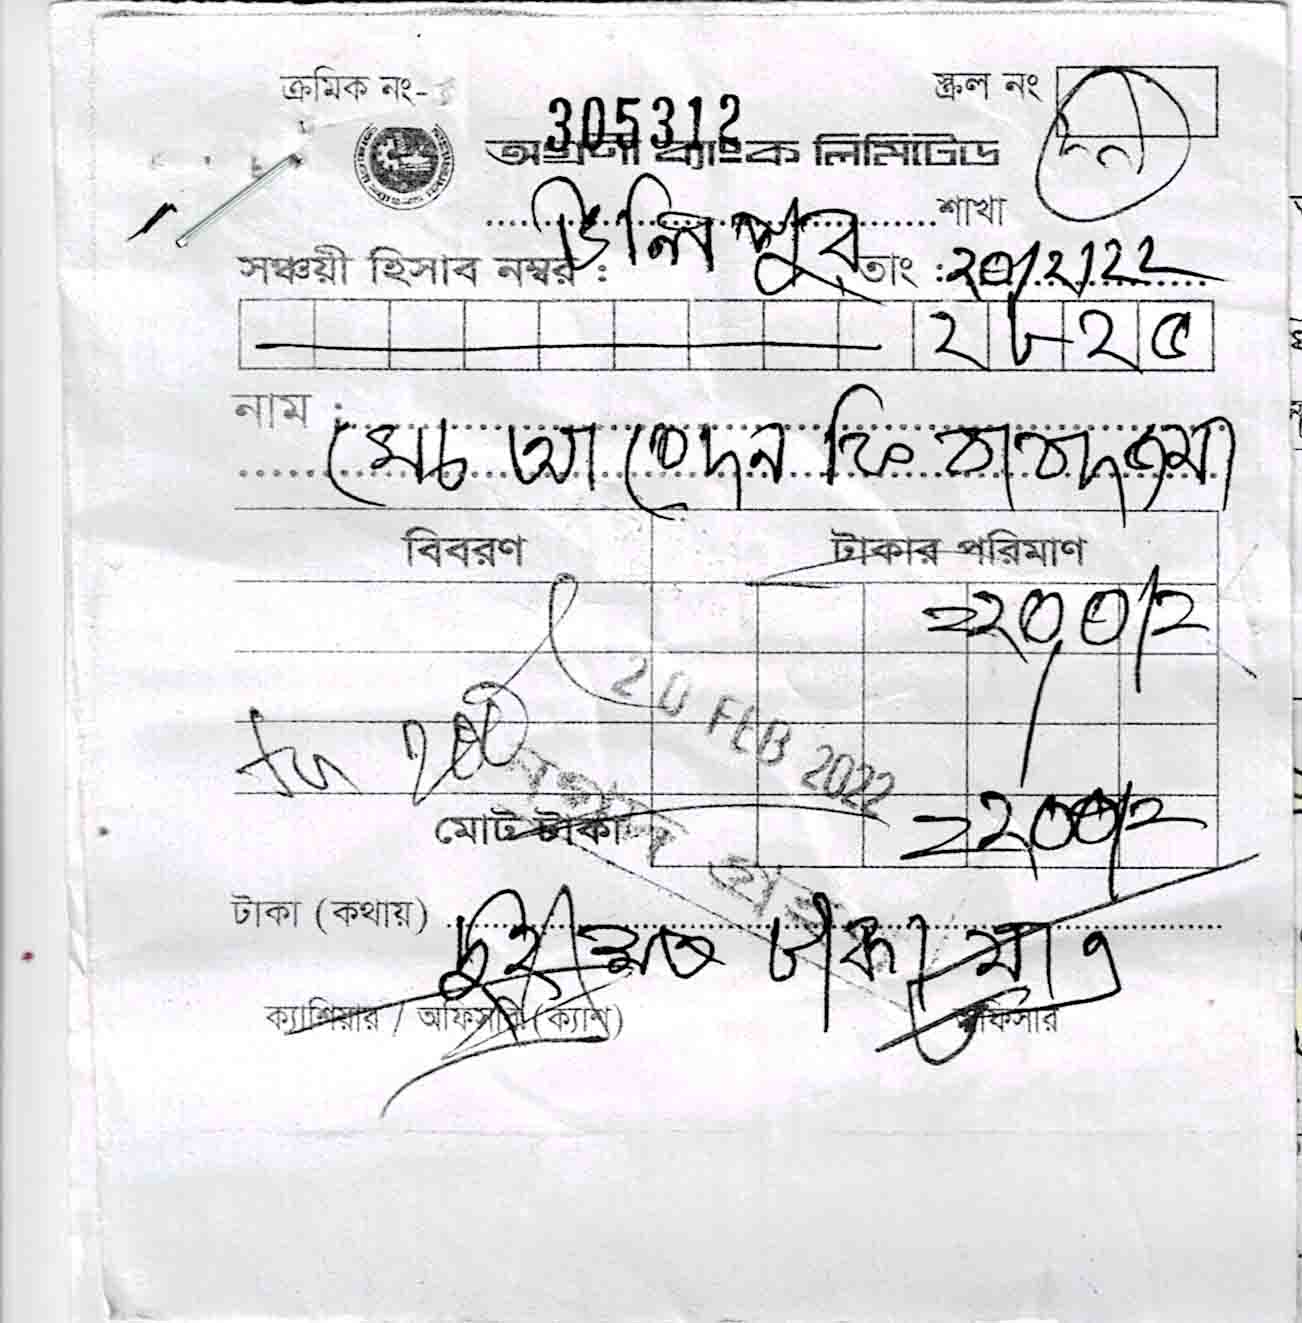 ক্রমিক নং-
স্ক্রল নং
305312
অগ্রণী ব্যাংক লিমিটেড
উলিপুর শাখা
সঞ্চয়ী হিসাব নম্বর :
তাং : ২০/২/২২
২৮২৫
নাম :
মোঃ আবেদন ফি বাবদ জমা
বিবরণ টাকার পরিমাণ
=২০০/=
20 FEB 2022
নগদ গ্রহণ
মোট টাকা =২০০/=
টাকা (কথায়)
দুইশত টাকা মাত্র
ক্যাশিয়ার / অফিসার (ক্যাশ) অফিসার